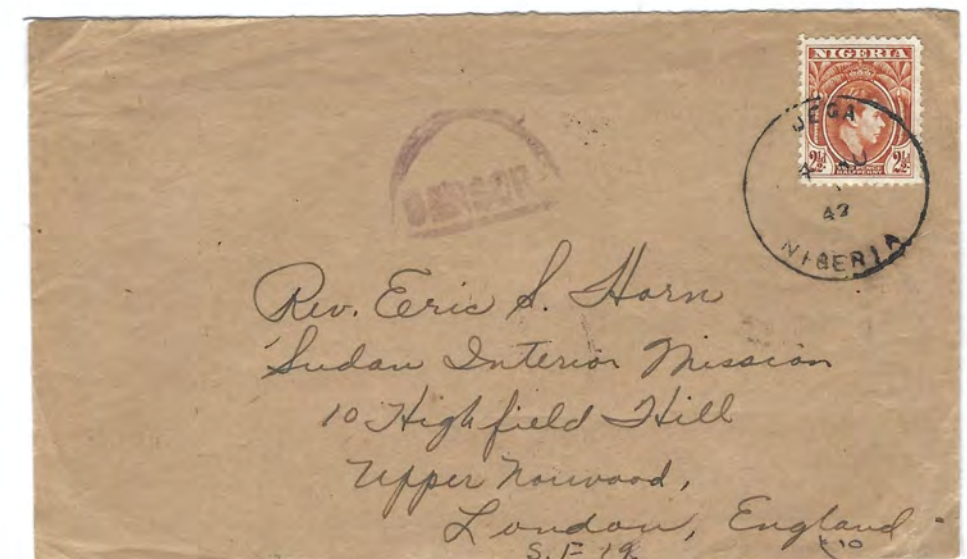 NIGERIA
2½d 2½d
HALFPENNY
JEGA
AU
43
NIGERIA
CENSOR
Rev. Eric S. Horn
Sudan Interior Mission
10 Highfield Hill
Upper Norwood,
London, England
S.E 19
10